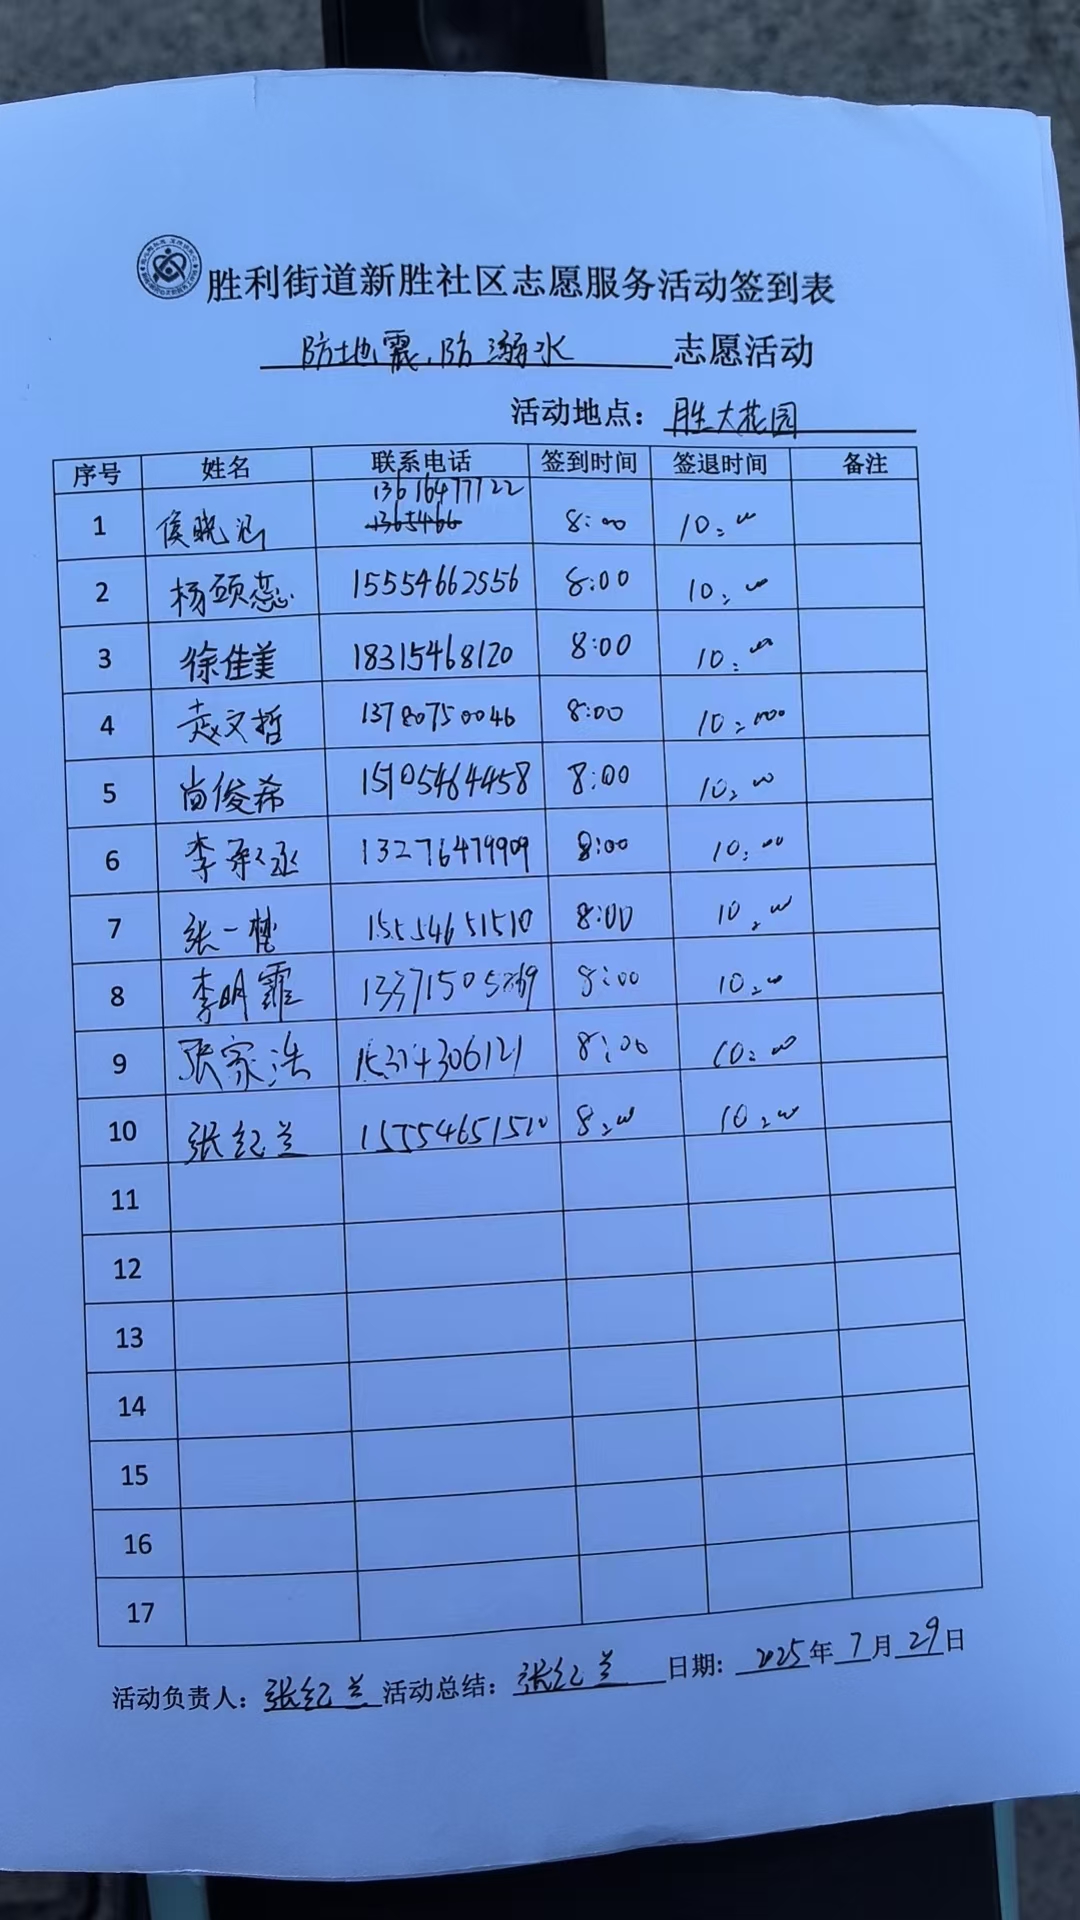 胜利街道新胜社区志愿服务活动签到表
防地震、防溺水 志愿活动
活动地点：胜大花园
序号 姓名 联系电话 签到时间 签退时间 备注
13616477722
1 侯晓 1365466 8:00 10:00
2 杨颐蕊 15554662556 8:00 10:00
3 徐佳美 18315468120 8:00 10:00
4 赵文哲 13780750046 8:00 10:000
5 尚俊希 15105464458 8:00 10:00
6 李承丞 13276479909 8:00 10:00
7 张一梵 15554651510 8:00 10:00
8 李明霏 8:00 10:00
9 张家浩 15314306121 8:00 10:00
10 张红兰 15554651510 8:00 10:00
11
12
13
14
15
16
17
活动负责人：张红兰 活动总结：张红兰 日期：2025年7月29日